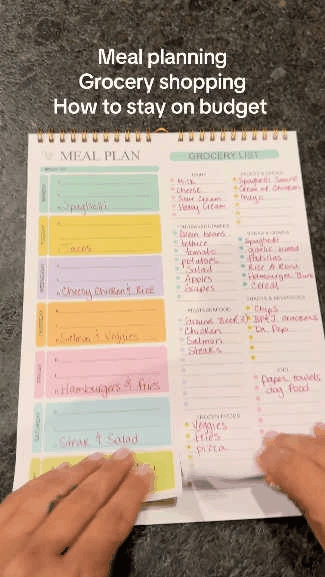 Meal planning
Grocery shopping
How to stay on budget
MEAL PLAN
GROCERY LIST
Spaghetti
Tacos
Cheesy Chicken & Rice
Salmon & Veggies
Hamburgers & Fries
Steak & Salad
DAIRY
Milk
Cheese
Sour Cream
Heavy Cream
Green beans
lettuce
tomato
potatoes
Salad
Apples
Grapes
Ground Beef
Chicken
Salmon
Steaks
FROZEN FOODS
Veggies
fries
pizza
Spaghetti Sauce
Cream of Chicken
mayo
Spaghetti
garlic bread
Tortillas
Rice A Roni
Hamburger Buns
Cereal
Chips
Dr. Pep
Paper towels
dog food